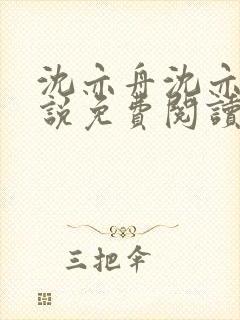 沈亦舟沈亦
說免費閱讀
三把伞